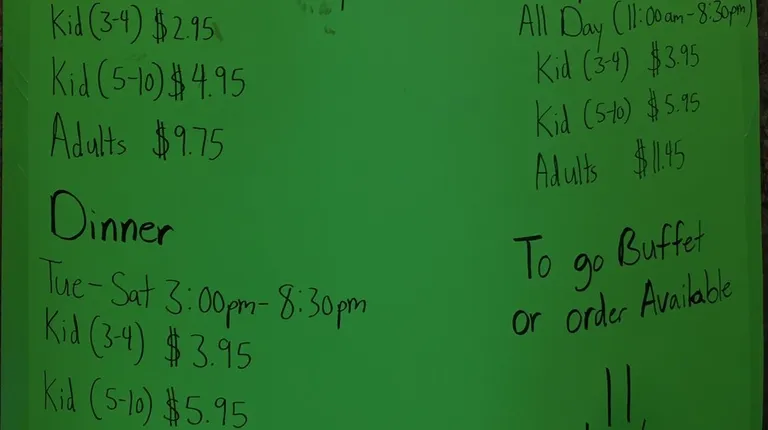 Kid (3-4) $2.95
Kid (5-10) $4.95
Adults $9.75
Dinner
Tue-Sat 3:00pm-8:30pm
Kid (3-4) $3.95
Kid (5-10) $5.95
All Day (11:00am-8:30pm)
Kid (3-4) $3.95
Kid (5-10) $5.95
Adults $11.45
To go Buffet
or order Available